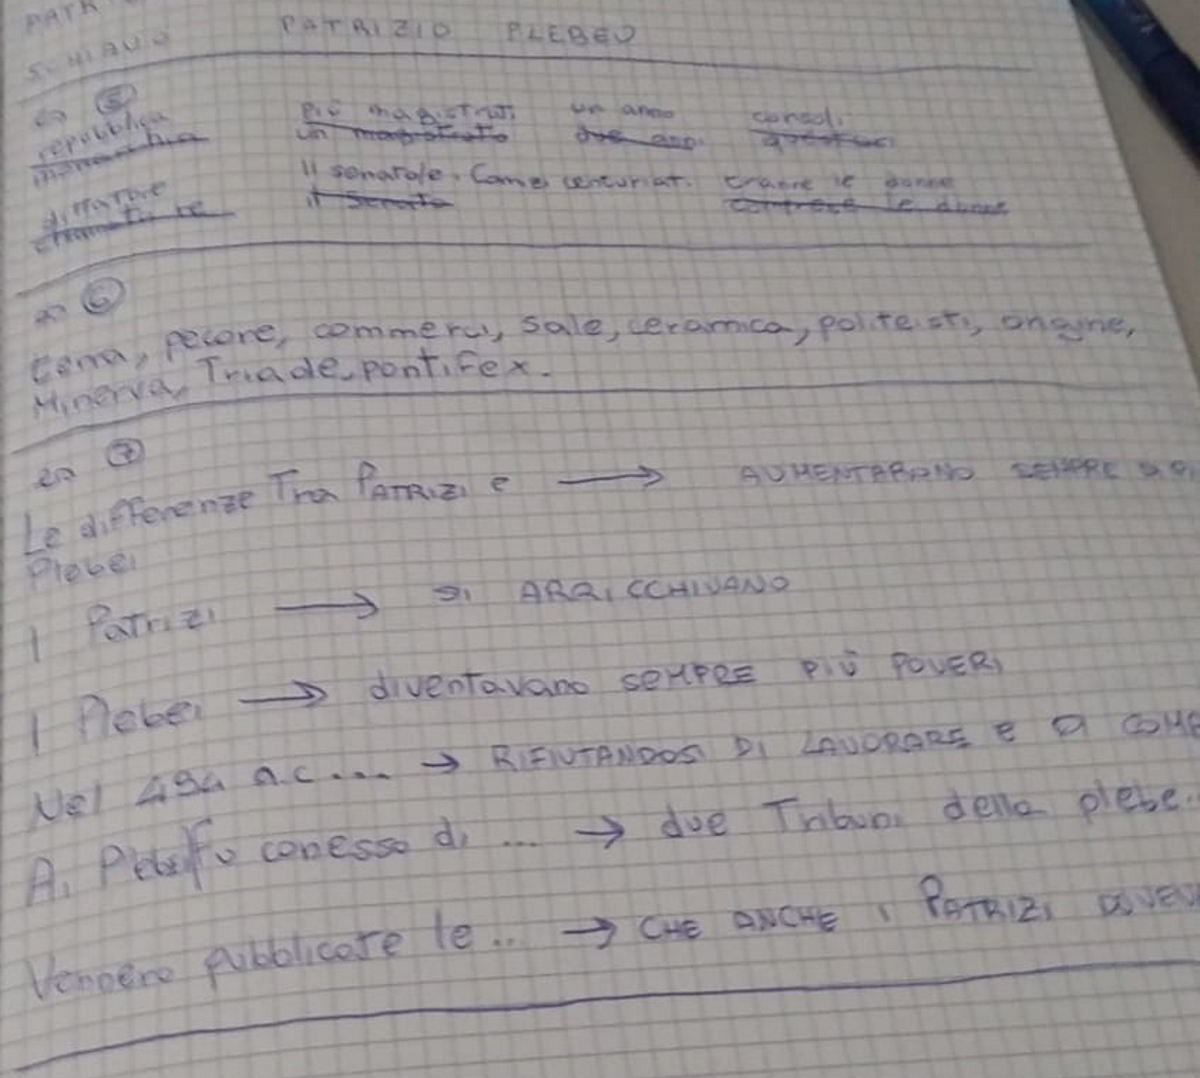 PATR
SCHIAVO PATRIZIO PLEBEO
es 5
repubblica più magistrati un anno consoli
monarchia un magistrato due anni
dittatore Il senatole. Comes centuriat. tranne le donne
re il Senato comprese le donne
es 6
Terra, pecore, commerci, sale, ceramica, politeisti, origine,
Minerva, Triade, pontifex.
es 7
Le differenze Tra PATRIZI e → AUMENTARONO SEMPRE DI PI
Plebei
I Patrizi → SI ARRICCHIVANO
I Plebei → diventavano SEMPRE PIÙ POVERI
Nel 494 a.c.... → RIFIUTANDOSI DI LAVORARE e DI COMB
Ai Plebei fu conesso di ... → due Tribuni della plebe.
Vennero pubblicate le .. → CHE ANCHE I PATRIZI DOVEV